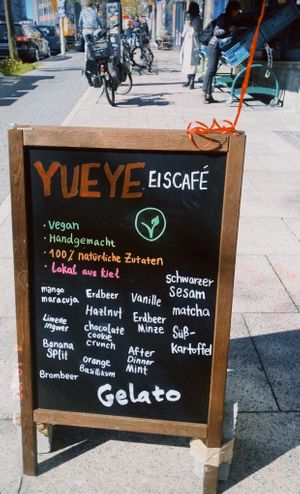 YUEYE EISCAFÉ
· Vegan
· Handgemacht
· 100% natürliche Zutaten
· Lokal aus Kiel
mango
maracuja
Limette
Ingwer
Banana
Split
Brombeer
Erdbeer
Hazlnut
chocolate
cookie
crunch
orange
Basilikum
Vanille
Erdbeer
Minze
After
Dinner
Mint
schwarzer
Sesam
matcha
Süß-
Kartoffel
Gelato